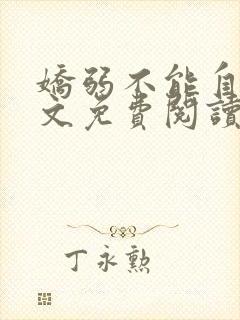 嬌弱不能自
文免費閱讀
丁永勲